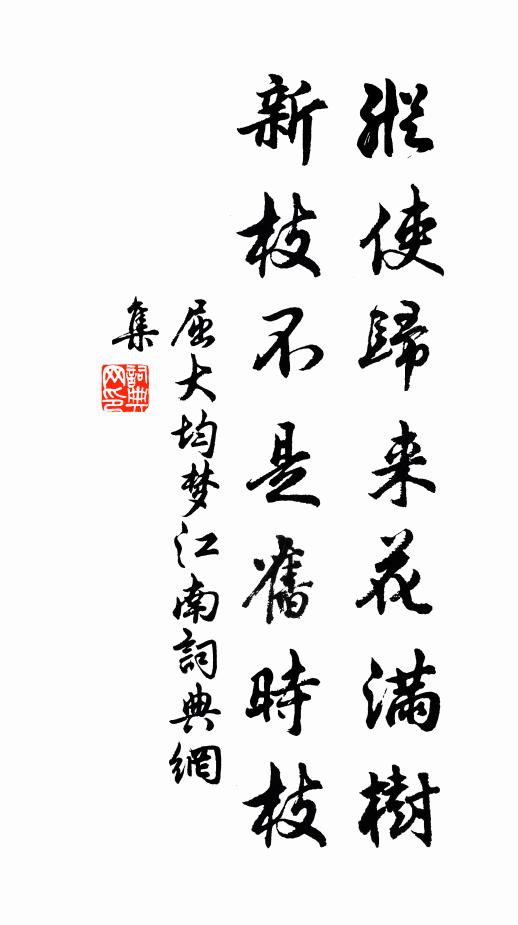 縱使歸来花滿樹
新枝不是舊時枝
屈大均梦江南詞典網
集
詞典网印